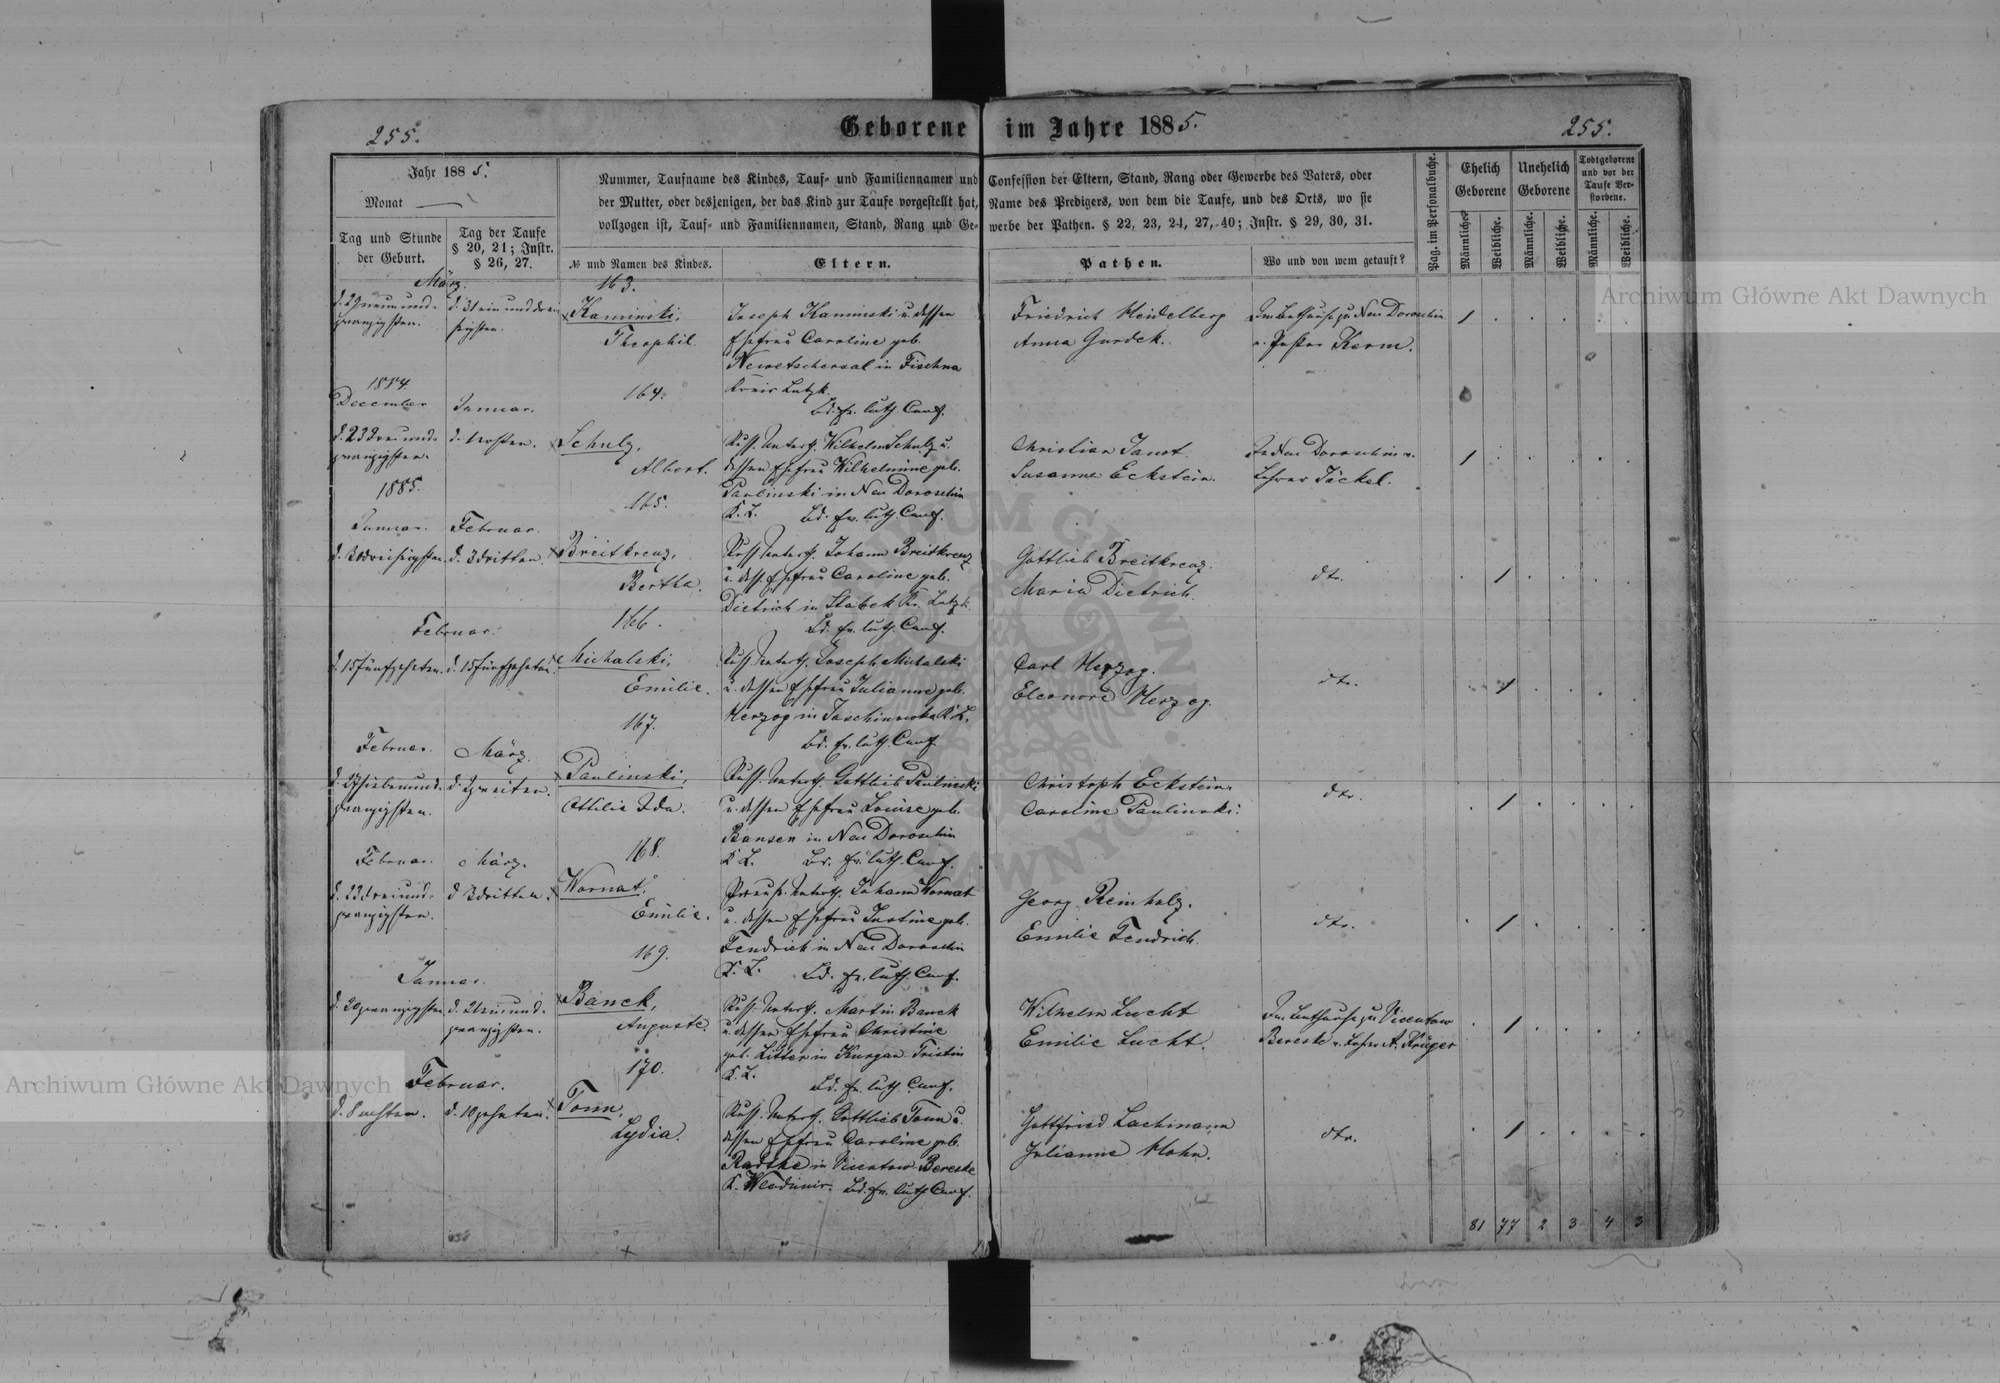 255.
Geborene im Jahre 1885.
255.
Jahr 1885.
Monat
Tag und Stunde
der Geburt.
Tag der Taufe
§ 20, 21; Instr.
§ 26, 27.
Nummer, Taufname des Kindes, Tauf- und Familiennamen und
der Mutter, oder desjenigen, der das Kind zur Taufe vorgestellt hat,
vollzogen ist, Tauf- und Familiennamen, Stand, Rang und Ge-
№ und Namen des Kindes.
Eltern.
Confession der Eltern, Stand, Rang oder Gewerbe des Vaters, oder
Name des Predigers, von dem die Taufe, und des Orts, wo sie
werbe der Pathen. § 22, 23, 24, 27, 40; Instr. § 29, 30, 31.
Pathen.
Wo und von wem getauft?
Pag. im Personalbuche.
Ehelich
Geborene
Unehelich
Geborene
Todtgeborene
und vor der
Taufe Ver-
storbene.
Männliche.
Weibliche.
Männliche.
Weibliche.
Männliche.
Weibliche.
März.
163.
d. 29 neun und-
zwanzigsten.
d. 31 ein und drei
ßigsten.
Kaminski,
Theophil.
Joseph Kaminski u. dessen
Ehefrau Caroline geb.
in Fischna
Kreis Lutzk.
Bd. ev. luth. Conf.
Friedrich Heidelberg
Anna Gurdek.
Im Bethause zu Neu Doroschin
v. Pastor Kerm.
1884
December
Januar.
164.
d. 23 drei und-
zwanzigsten.
d. 1 ersten.
Schulz,
Albert.
Russ. Unterth. Wilhelm Schulz u.
dessen Ehefrau Wilhelmine geb.
Paulinski in Neu Doroschin
K. L. Bd. ev. luth. Conf.
Christian Janot
Susanne Eckstein.
In Neu Doroschin v.
Lehrer Jäckel.
1885.
Januar. Februar.
165.
d. 30 dreißigsten.
d. 3 dritten.
Breitkreuz,
Bertha.
Russ. Unterth. Johann Breitkreuz
u. dess. Ehefrau Caroline geb.
Dietrich in Stabek Kr. Lutzk
Bd. ev. luth. Conf.
Gottlieb Breitkreuz.
Maria Dietrich.
dto.
Februar.
166.
d. 15 fünfzehnten.
d. 15 fünfzehnten.
Michalski,
Emilie.
Russ. Unterth. Joseph Michalski
u. dessen Ehefrau Julianne geb.
Herzog in K. L.
Bd. ev. luth. Conf.
Carl Herzog.
Eleonore Herzog.
dto.
Februar. März.
167.
d. 27 sieben und-
zwanzigsten.
d. 2 zweiten.
Paulinski,
Ottilie Ida.
Russ. Unterth. Gottlieb Paulinski
u. dessen Ehefrau Louise geb.
Bansen in Neu Doroschin
K. L. Bd. ev. luth. Conf.
Christoph Eckstein.
Caroline Paulinski.
dto.
Februar. März.
168.
d. 23 drei und-
zwanzigsten.
d. 3 dritten.
Wornat,
Emilie.
Preuß. Unterth. Johann Wornat
u. dessen Ehefrau Justine geb.
Fendrich in Neu Doroschin
K. L. Bd. ev. luth. Conf.
Georg Reinholz.
Emilie Fendrich.
dto.
Januar.
169.
d. 20 zwanzigsten.
d. 21 ein und-
zwanzigsten.
Banck,
Auguste.
Russ. Unterth. Martin Banck
u. dessen Ehefrau Christine
geb. Litter in Kurgan Tristin
K. L. Bd. ev. luth. Conf.
Wilhelm Lucht
Emilie Lucht.
Im Bethause zu Vicentow
Bereske v. Lehrer A. Krüger
Februar.
170.
d. 8 achten.
d. 10 zehnten.
Tonn,
Lydia.
Russ. Unterth. Gottlieb Tonn u.
dessen Ehefrau Caroline geb.
Radtke in Vicentow Bereske
K. Wladimir. Bd. ev. luth. Conf.
Gottfried Lachmann
Julianne Hohn.
dto.
81 77 2 3 4 3
Archiwum Główne Akt Dawnych
Archiwum Główne Akt Dawnych